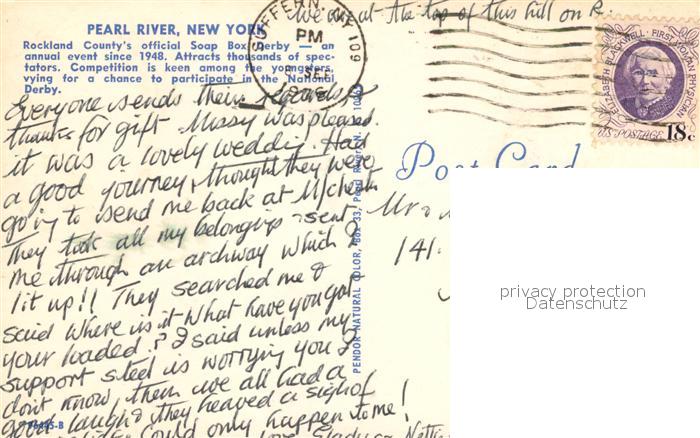 we are at the top of this hill on R.
PEARL RIVER, NEW YORK
Rockland County's official Soap Box Derby — an
annual event since 1948. Attracts thousands of spec-
tators. Competition is keen among the youngsters,
vying for a chance to participate in the National
Derby.
SUFFERN, NY 109
PM
SEP
ELIZABETH BLACKWELL · FIRST WOMAN PHYSICIAN
U.S. POSTAGE 18c
Post Card
Everyone sends their regards &
thanks for gift Missy was pleased.
it was a lovely wedding. Had
a good journey, thought they were
going to send me back at M/chester
They took all my belongings & sent
me through an archway which I
lit up!! They searched me &
said where is it what have you got
your loaded? I said unless my
support steel is worrying you I
don't know, then we all had a
good laugh & they heaved a sigh of
Could only happen to me!
Love Gladys
PENDOR NATURAL COLOR, Box 33, Pearl River, N.Y. 10965
Mr &
141
privacy protection
Datenschutz